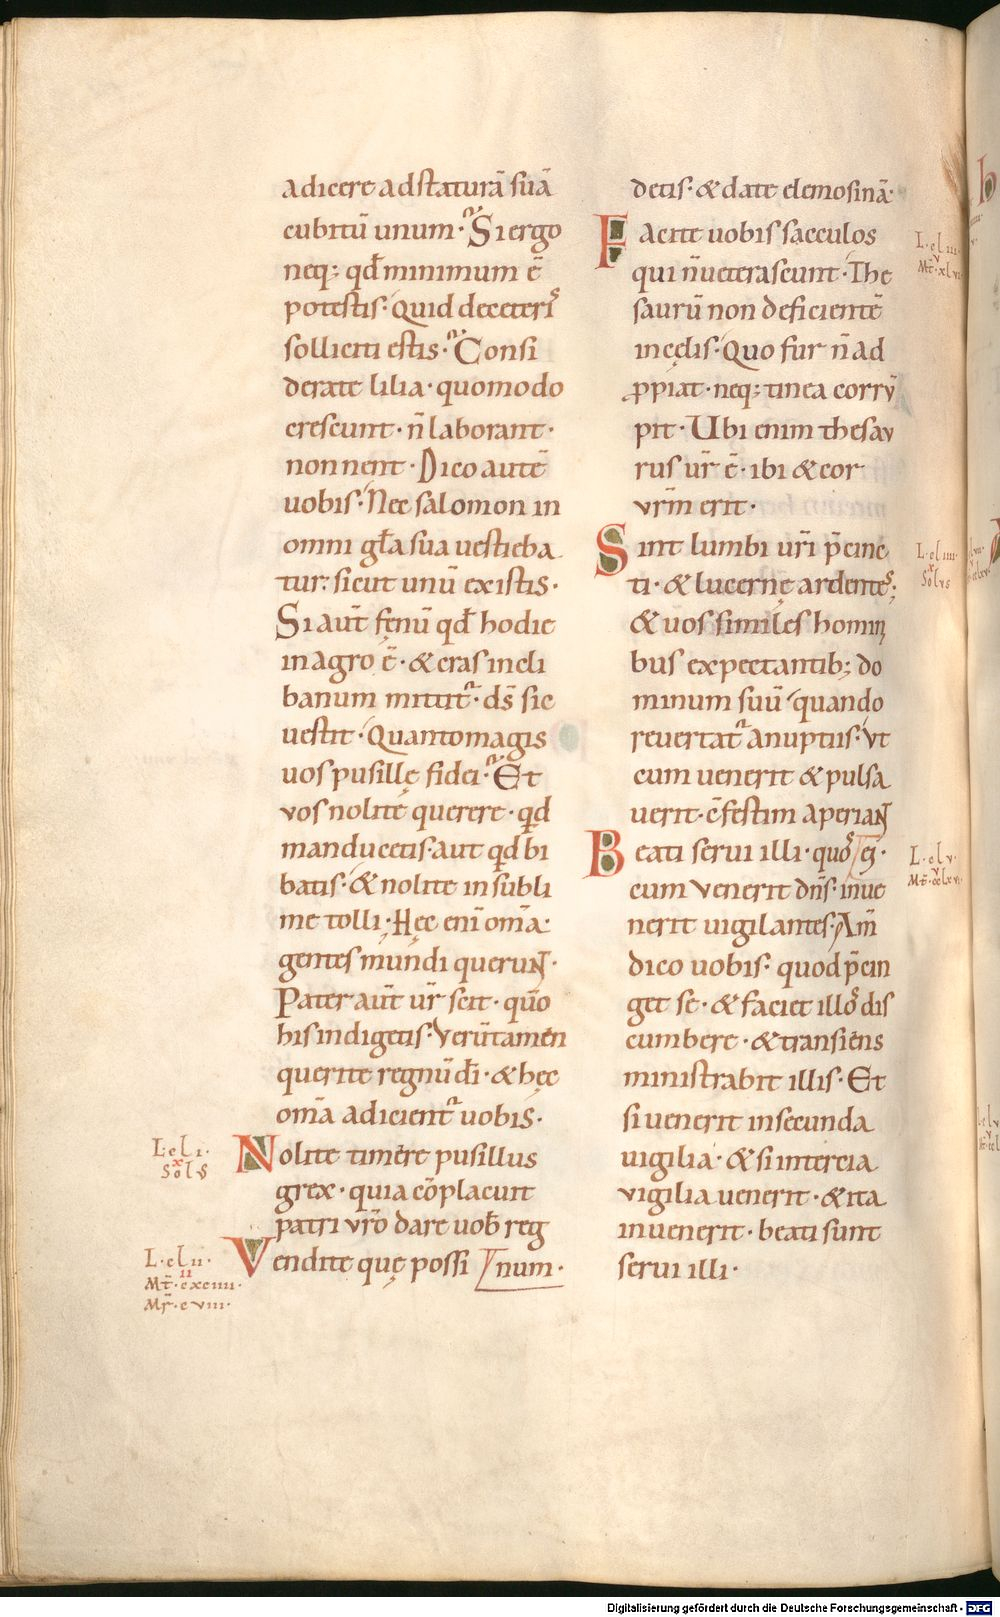 adicere ad staturā suā
cubitū unum· Si ergo
neq; qđ minimum ē
potestis· Quid de ceteris
solliciti estis· Consi
derate lilia· quomodo
crescunt· ñ laborant·
non nent· Dico autē
uobis· Nec salomon in
omni gła sua uestieba
tur· sicut unū ex istis·
Si aut̄ fęnū qđ hodie
in agro ē· & cras in cli
banum mittit᷑· dš sic
uestit· Quanto magis
uos pusillę fidei· Et
vos nolite querere· qđ
manducetis· aut qđ bi
batis· & nolite in subli
me tolli· Hęc eni̅ om̅a·
gentes mundi querunt·
Pater aut̄ ur̄ scit· quo̅
his indigetis· Verūtamen
querite regnū di̅· & hęc
om̅a adicient᷑ uobis·
L· cl i·
Solˢ
Nolite timere pusillus
grex· quia co̅placuit
patri vr̄o dare uob̄ reg
num·
L· cl ii·
Mt̄· cxciiii·
II
Mr̄· c viii·
Vendite quę possi
detis· & date elemosinā·
Facite uobis sacculos
qui ñ ueterascunt· The
saurū non deficientē
in cęlis· Quo fur ñ ad
ꝓpiat· neq; tinea corrū
pit· Ubi enim thesau
rus ur̄ ē· ibi & cor
vrm̅ erit·
Sint lumbi ur̄i p̄cinc
ti· & lucernę ardentes;
& uos similes homini
bus expectantib; do
minum suū quando
reuertat᷑ a nuptiis· vt
cum uenerit & pulsa
uerit· c̅festim aperiant
ei·
L· cl iiii·
x
Solvs
L· cl v·
Beati serui illi· quos
cum venerit dn̄s· inue
nerit uigilantes· Am̄
dico uobis· quod p̄cin
get se· & faciet illos dis
cumbere· & transiens
ministrabit illis· Et
si uenerit in secunda
uigilia· & si in tercia
vigilia uenerit· & ita
inuenerit· beati sunt
serui illi·
Digitalisierung gefördert durch die Deutsche Forschungsgemeinschaft - DFG